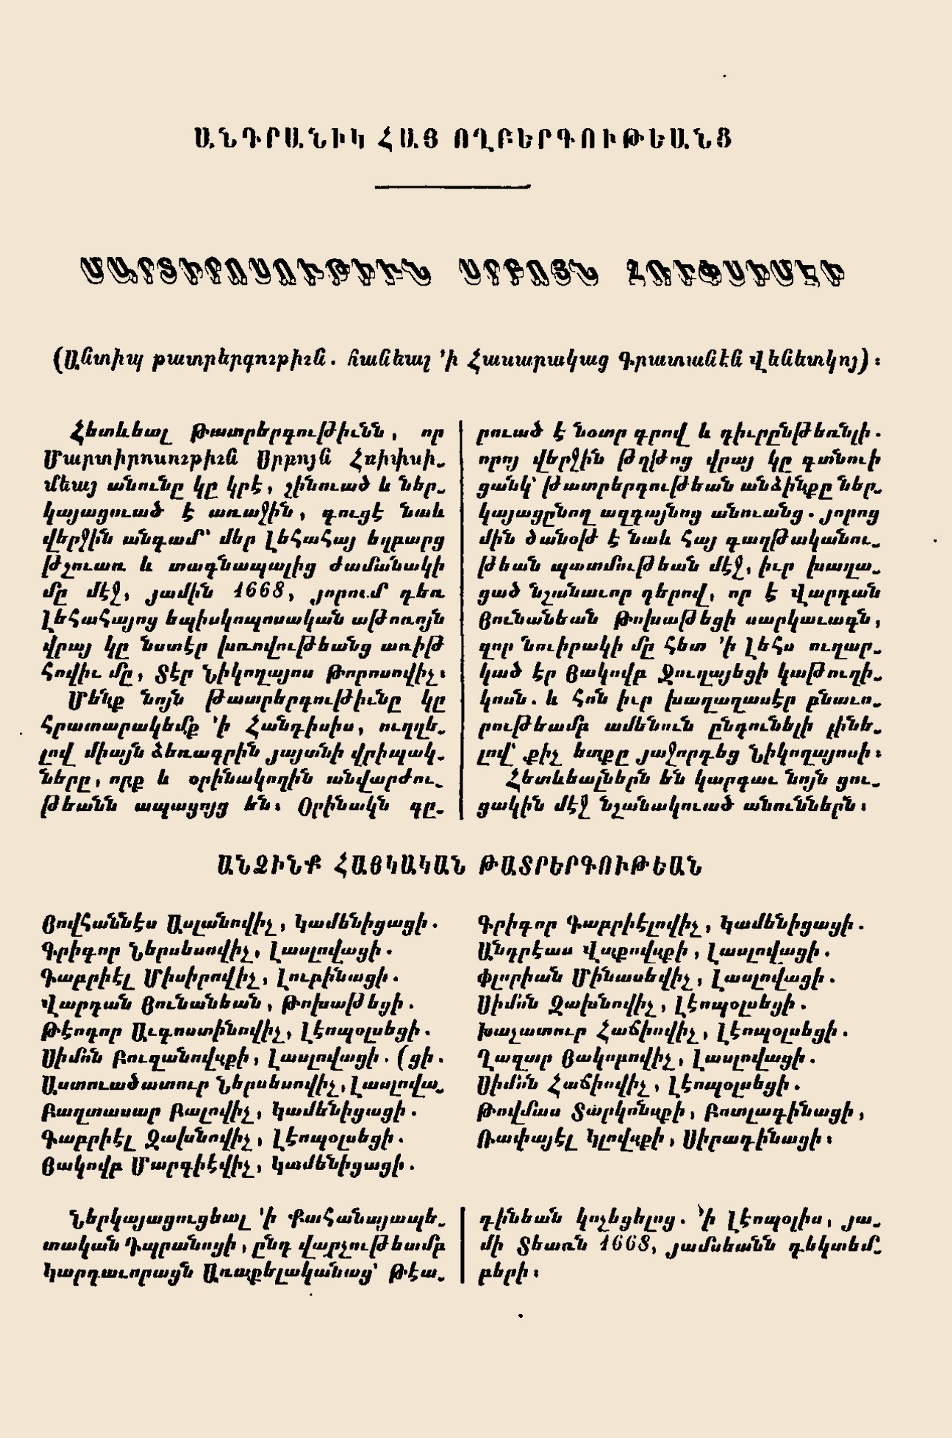 ԱՆԴՐԱՆԻԿ ՀԱՅ ՈՂԲԵՐԳՈՒԹԵԱՆՑ
ՄԱՐՏԻՐՈՍՈՒԹԻՒՆ ՍՐԲՈՅՆ ՀՌԻՓՍԻՄԷԻ
(Անտիպ թատրերգութիւն. հանեալ ՚ի Հասարակաց Գրատանէն Վենետկոյ)։
Հետևեալ թատրերգութիւնն, որ
Մարտիրոսութիւն Սրբոյն Հռիփսի-
մեայ անունը կը կրէ, շինուած և ներ-
կայացուած է առաջին, գուցէ նաև
վերջին անգամ՝ մեր Լեհահայ եղբարց
թշուառ և տագնապալից ժամանակի
մը մէջ, յամին 1668, յորում դեռ
Լեհահայոց եպիսկոպոսական աթոռոյն
վրայ կը նստէր խռովութեանց առիթ
հովիւ մը, Տէր Նիկողայոս Թորոսովիչ։
Մենք նոյն թատրերգութիւնը կը
հրատարակեմք ՚ի Հանդիսիս, ուղղե-
լով միայն ձեռագրին յայտնի վրիպակ-
ները, որք և օրինակողին անվարժու-
թեանն ապացոյց են։ Օրինակն գը-
րուած է նօտր գրով և դիւրընթեռնլի.
որոյ վերջին թղթոց վրայ կը գտնուի
ցանկ՝ թատրերգութեան անձինքը ներ-
կայացընող ազդայնոց անուանց. յորոց
մին ծանօթ է նաև հայ գաղթականու-
թեան պատմութեան մէջ, իւր խաղա-
ցած նշանաւոր դերով, որ է Վարդան
Յունանեան Թոխաթեցի սարկաւագն,
զոր նուիրակի մը հետ ՚ի Լեհս ուղար-
կած էր Յակովբ Ջուղայեցի կաթուղի-
կոսն. և հոն իւր խաղաղասէր բնաւո-
րութեամբ ամենուն ընդունելի լինե-
լով՝ քիչ ետքը յաջորդեց Նիկողայոսի։
Հետևեալներն են կարգաւ նոյն ցու-
ցակին մէջ նշանակուած անուններն։
ԱՆՁԻՆՔ ՀԱՅԿԱԿԱՆ ԹԱՏՐԵՐԳՈՒԹԵԱՆ
Յովհաննէս Ասլանովիչ, Կամենիցացի.
Գրիգոր Ներսեսովիչ, Լասլովացի.
Գաբրիէլ Միսիրովիչ, Լուբինացի.
Վարդան Յունանեան, Թոխաթեցի.
Թէոդոր Աւգոստինովիչ, Լէոպօլսեցի.
Սիմոն Բուգանովսքի, Լասլովացի. (ցի.
Աստուածատուր Ներսեսովիչ, Լասլովա-
Բաղտասար Բալովիչ, Կամենիցացի.
Գաբրիէլ Զախնովիչ, Լէոպօլսեցի.
Յակովբ Մարգիէվիչ, Կամենիցացի.
Գրիգոր Գաբրիէլովիչ, Կամենիցացի.
Անդրէաս Վաքովսքի, Լասլովացի.
Փլորիան Մինասեվիչ, Լասլովացի.
Սիմոն Զախնովիչ, Լէոպօլսեցի.
Խաչատուր Հաճիովիչ, Լէոպօլսեցի.
Ղազար Յակոբովիչ, Լասլովացի.
Սիմոն Հաճիովիչ, Լէոպօլսեցի.
Թովմաս Տարկոնսքի, Բոտլագինացի,
Ռափայէլ Կլովսքի, Սիրադինացի։
Ներկայացուցեալ ՚ի Քահանայապե-
տական Դպրանոցի, ընդ վարչութեամբ
Կարգաւորացն Առաքելականաց՝ Թէա-
դինեան կոչեցելոց. ՚ի Լէոպօլիս, յա-
մի Տեառն 1668, յամսեանն դեկտեմ-
բերի։